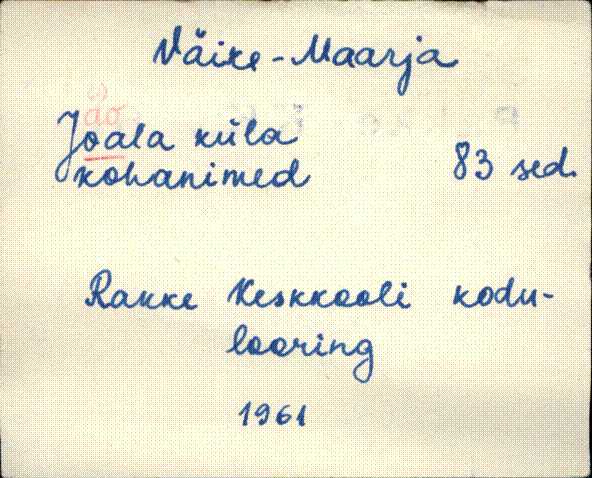 Väike-Maarja
ao
Joala küla
kohanimed 83 sed.
Rakke Keskkooli kodu-
looring
1961